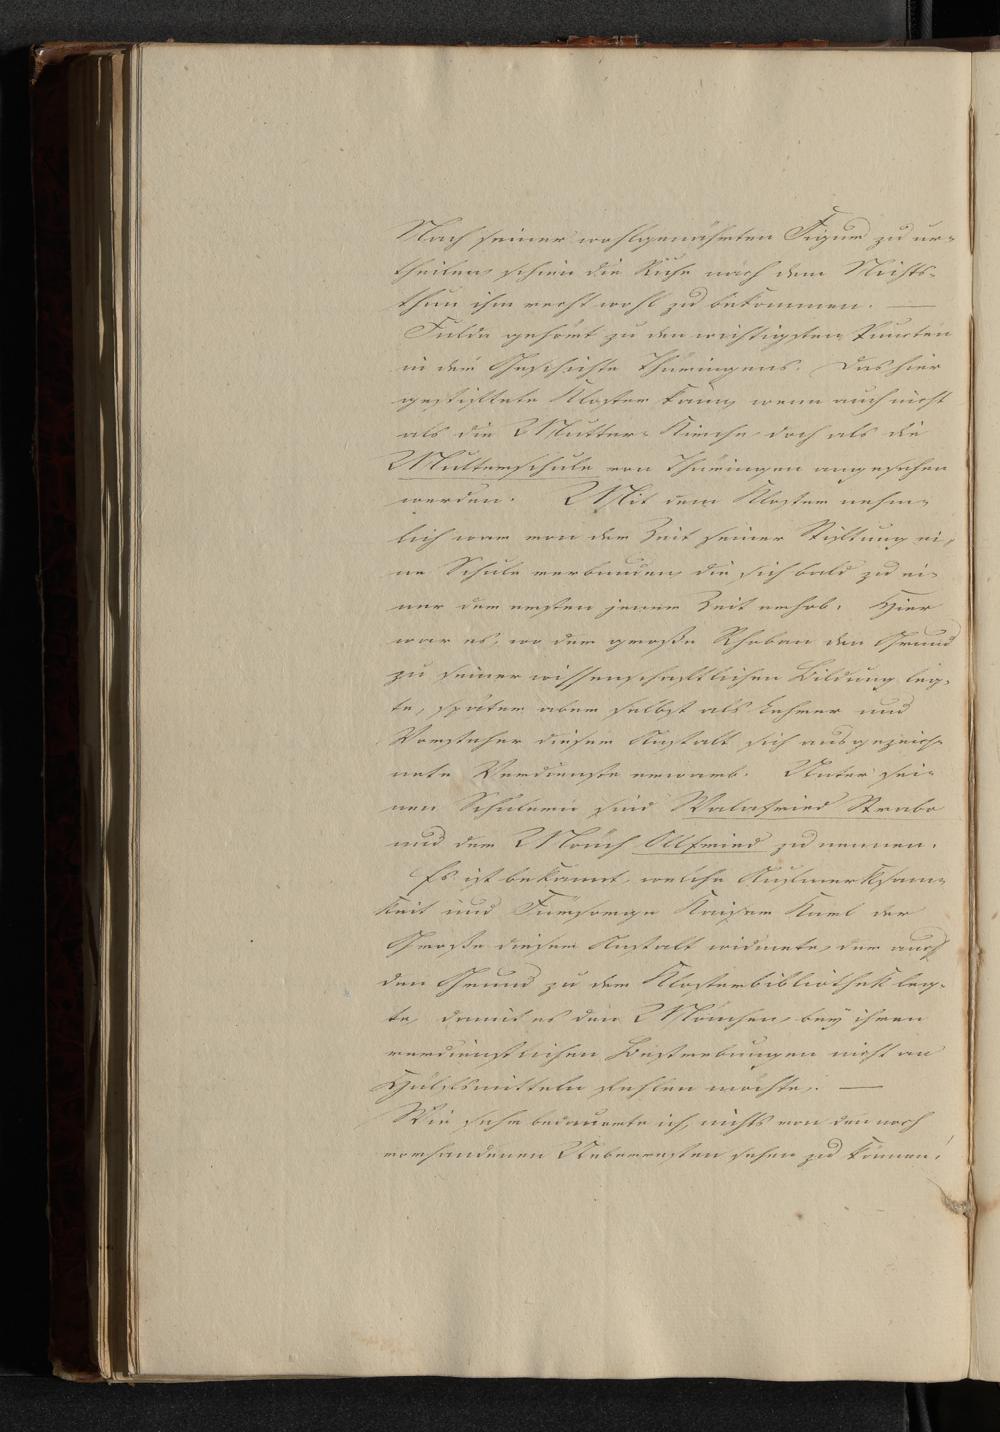 Nach seiner wohlgenährten Figur zu ur-
theilen, schien die Ruhe nach dem Nichts-
thun ihm recht wohl zu bekommen. —
Fulda gehört zu den wichtigsten Puncten
in der Geschichte Thüringens. Das hier
gestiftete Kloster kann, wenn auch nicht
als die Mutter-Kirche, doch als die
Mutterschule von Thüringen angesehen
werden. Mit dem Kloster nehm-
lich war von der Zeit seiner Stiftung ei-
ne Schule verbunden, die sich bald zu ei-
ner der ersten jener Zeit erhob. Hier
war es, wo der große Rhaban den Grund
zu seiner wissenschaftlichen Bildung leg-
te, später aber selbst als Lehrer und
Vorsteher dieser Anstalt sich ausgezeich-
nete Verdienste erwarb. Unter sei-
nen Schülern sind Walafried Strabo
und der Mönch Ottfried zu nennen.
Es ist bekannt, welche Aufmerksam-
keit und Fürsorge Kaiser Karl der
Große dieser Anstalt widmete, der auch
den Grund zu der Klosterbibliothek leg-
te, damit es den Mönchen, bey ihren
verdienstlichen Bestrebungen nicht an
Hülfsmitteln fehlen möchte. —
Wie sehr bedauerte ich, nichts von den noch
vorhandenen Ueberresten sehen zu können!